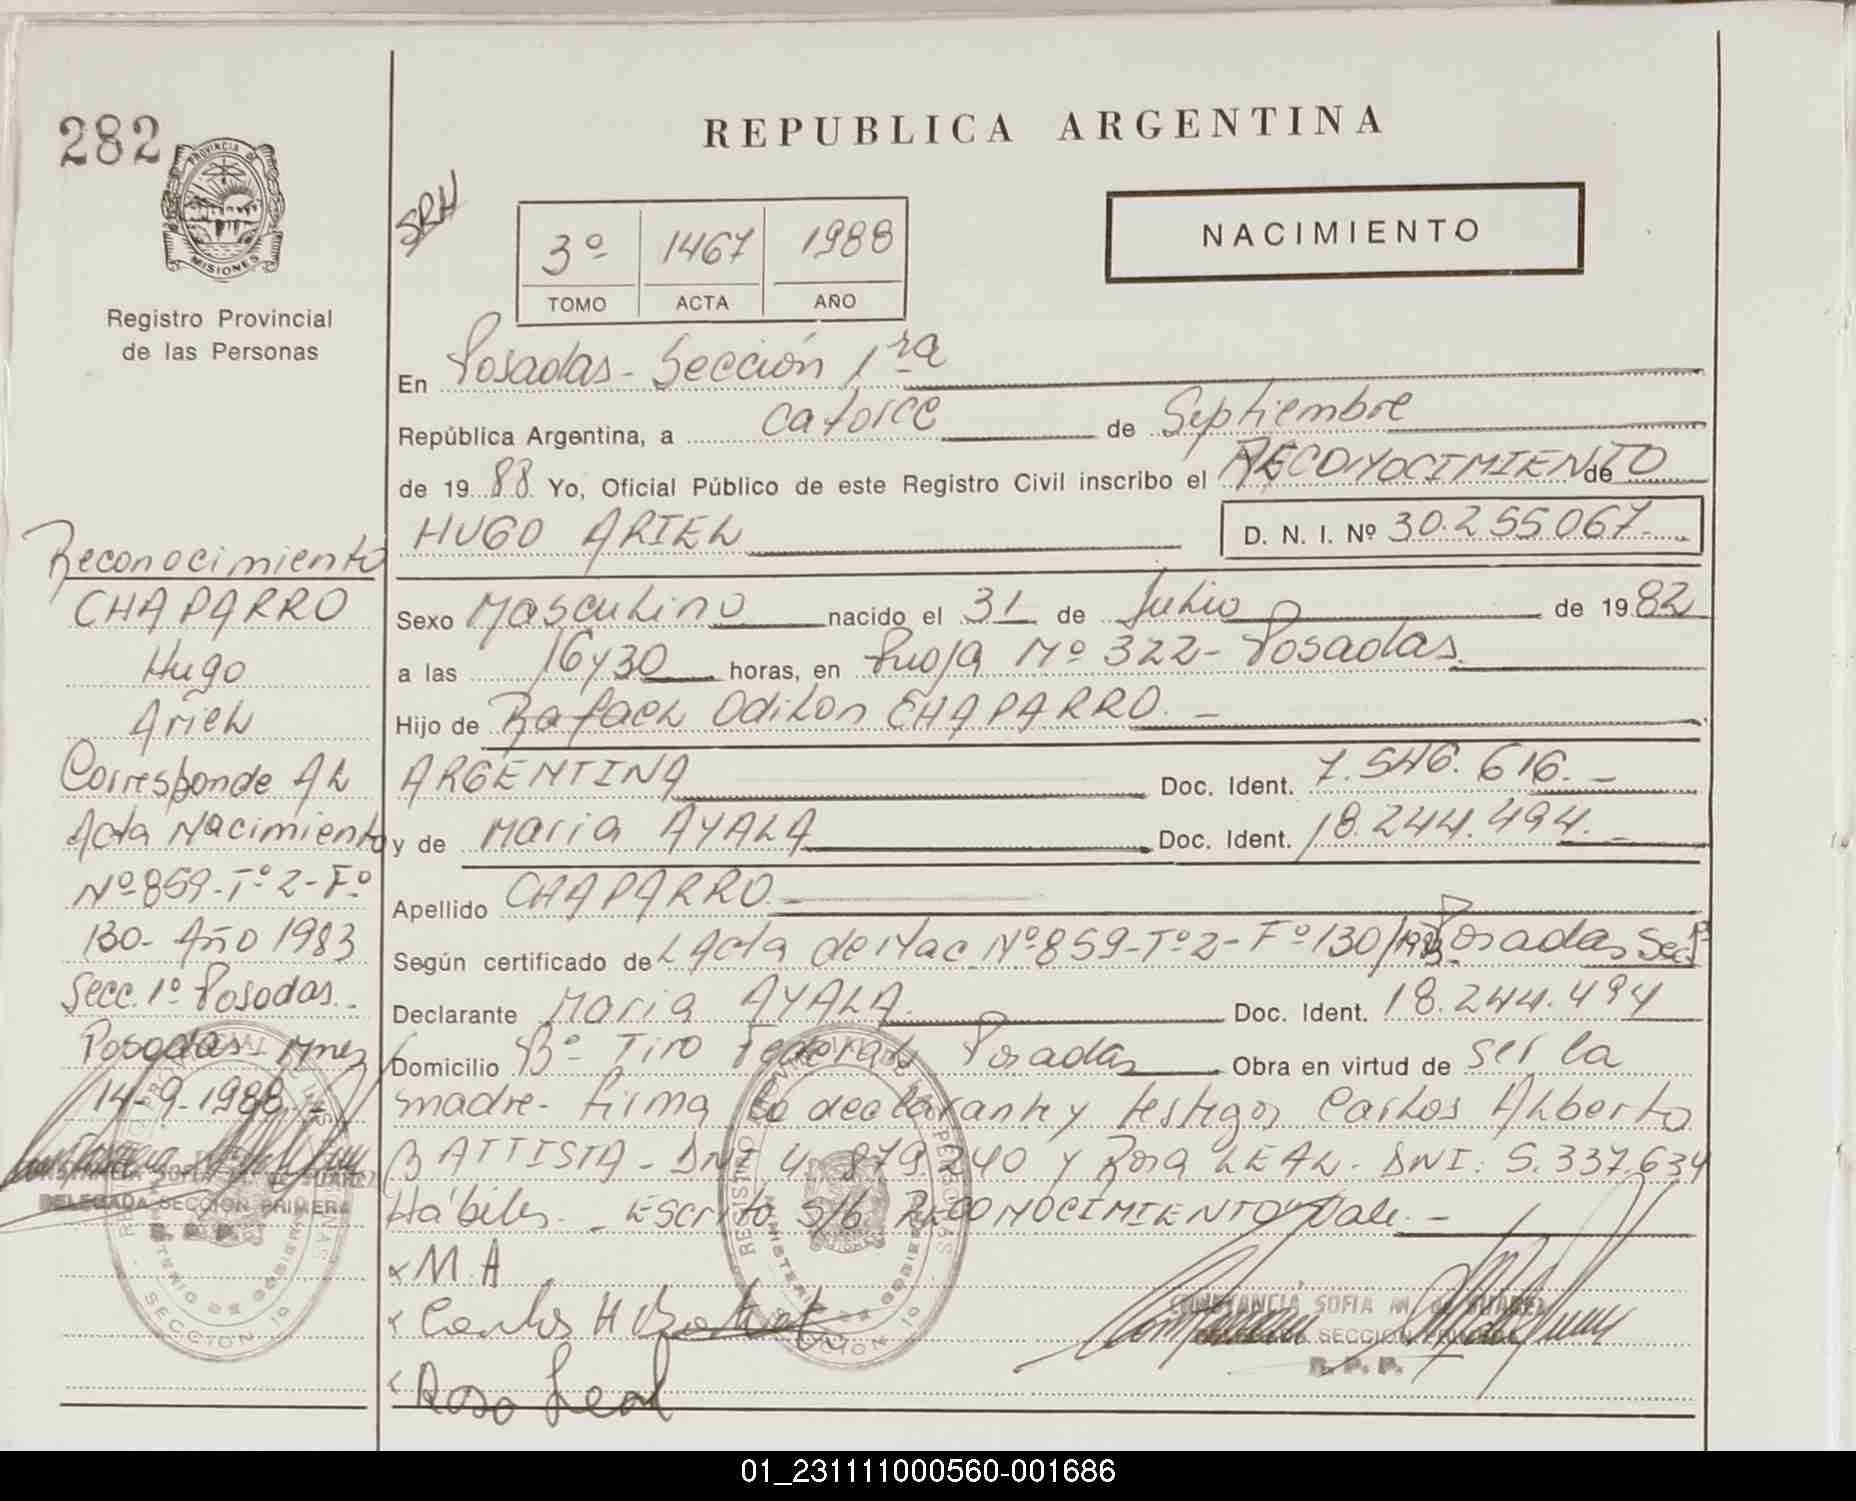 282
PROVINCIA DE
MISIONES
Registro Provincial
de las Personas
Reconocimiento
CHAPARRO
Hugo
Ariel
Corresponde AL
Acta Nacimiento
Nº 859-Tº 2-Fº
130- Año 1983
Secc. 1º Posadas.-
Posadas- Mnes
14-9-1988.-
DELEGADA SECCION PRIMERA
R. P. P.
REPUBLICA ARGENTINA
SRH
3º 1467 1988
TOMO ACTA AÑO
NACIMIENTO
En Posadas- Sección 1ra
República Argentina, a catorce de Septiembre
de 1988 Yo, Oficial Público de este Registro Civil inscribo el RECONOCIMIENTO de
HUGO ARIEL D. N. I. Nº 30.255.067.-
Sexo Masculino nacido el 31 de Julio de 1982
a las 16 y 30 horas, en Rioja Nº 322- Posadas.
Hijo de Rafael Odilon CHAPARRO.-
ARGENTINA Doc. Ident. 7.546.616.-
y de Maria AYALA Doc. Ident. 18.244.494.-
Apellido CHAPARRO.-
Según certificado de L Acta de Nac. Nº 859-Tº 2-Fº 130/1983 Posadas Sec. 1ª
Declarante Maria AYALA. Doc. Ident. 18.244.494
Domicilio Bº Tiro Federal Posadas Obra en virtud de ser la
madre- firma la declarante y testigos Carlos Alberto
BATTISTA- DNI 4.879.240 y Rosa LEAL- DNI: 5.337.634
Hábiles.- Escrito S/b RECONOCIMIENTO "Vale.-
M.A
Carlos A
Rosa Leal
CONSTANCIA SOFIA M. de SUAREZ
DELEGADA SECCION PRIMERA
R. P. P.
01_231111000560-001686